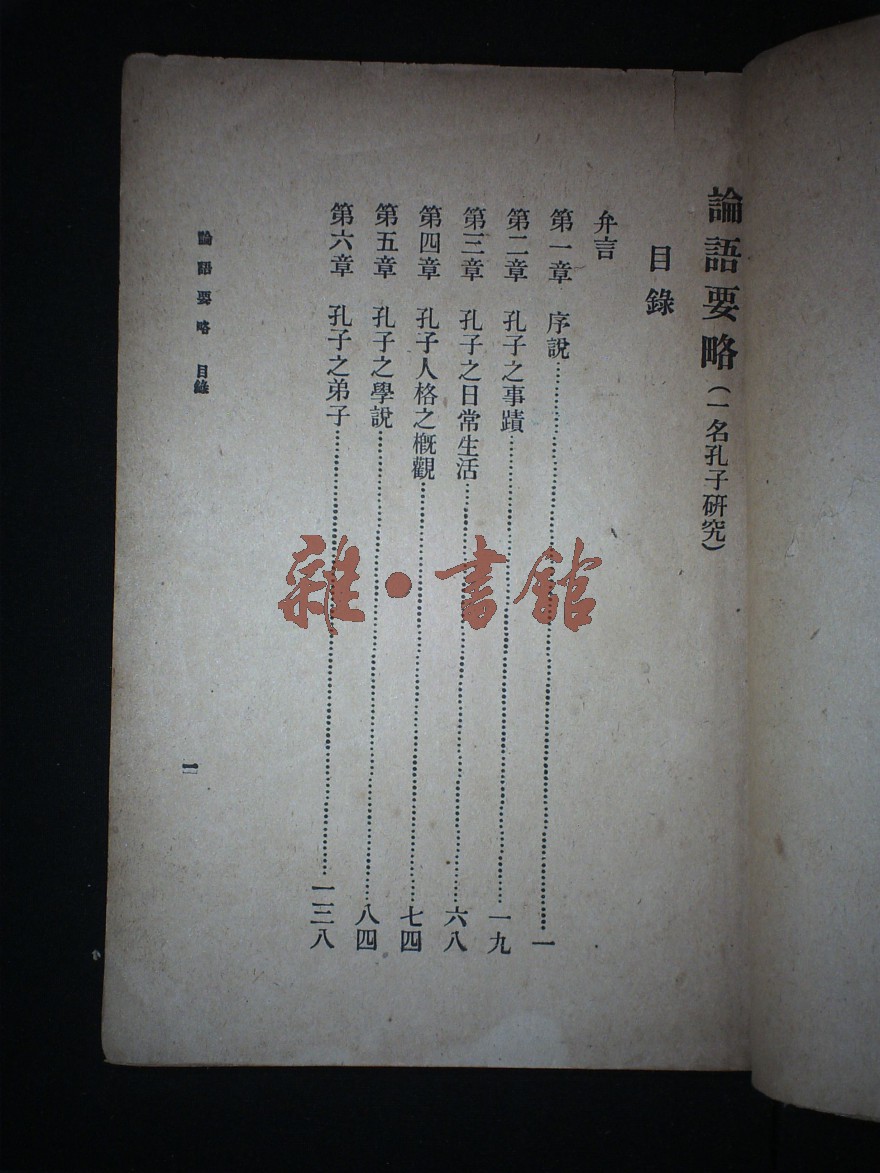 論語要略(一名孔子研究)
目錄
弁言
第一章 序說……一
第二章 孔子之事蹟……一九
第三章 孔子之日常生活……六八
第四章 孔子人格之概觀……七四
第五章 孔子之學說……八四
第六章 孔子之弟子……一三八
論語要略 目錄
一
雜·書館